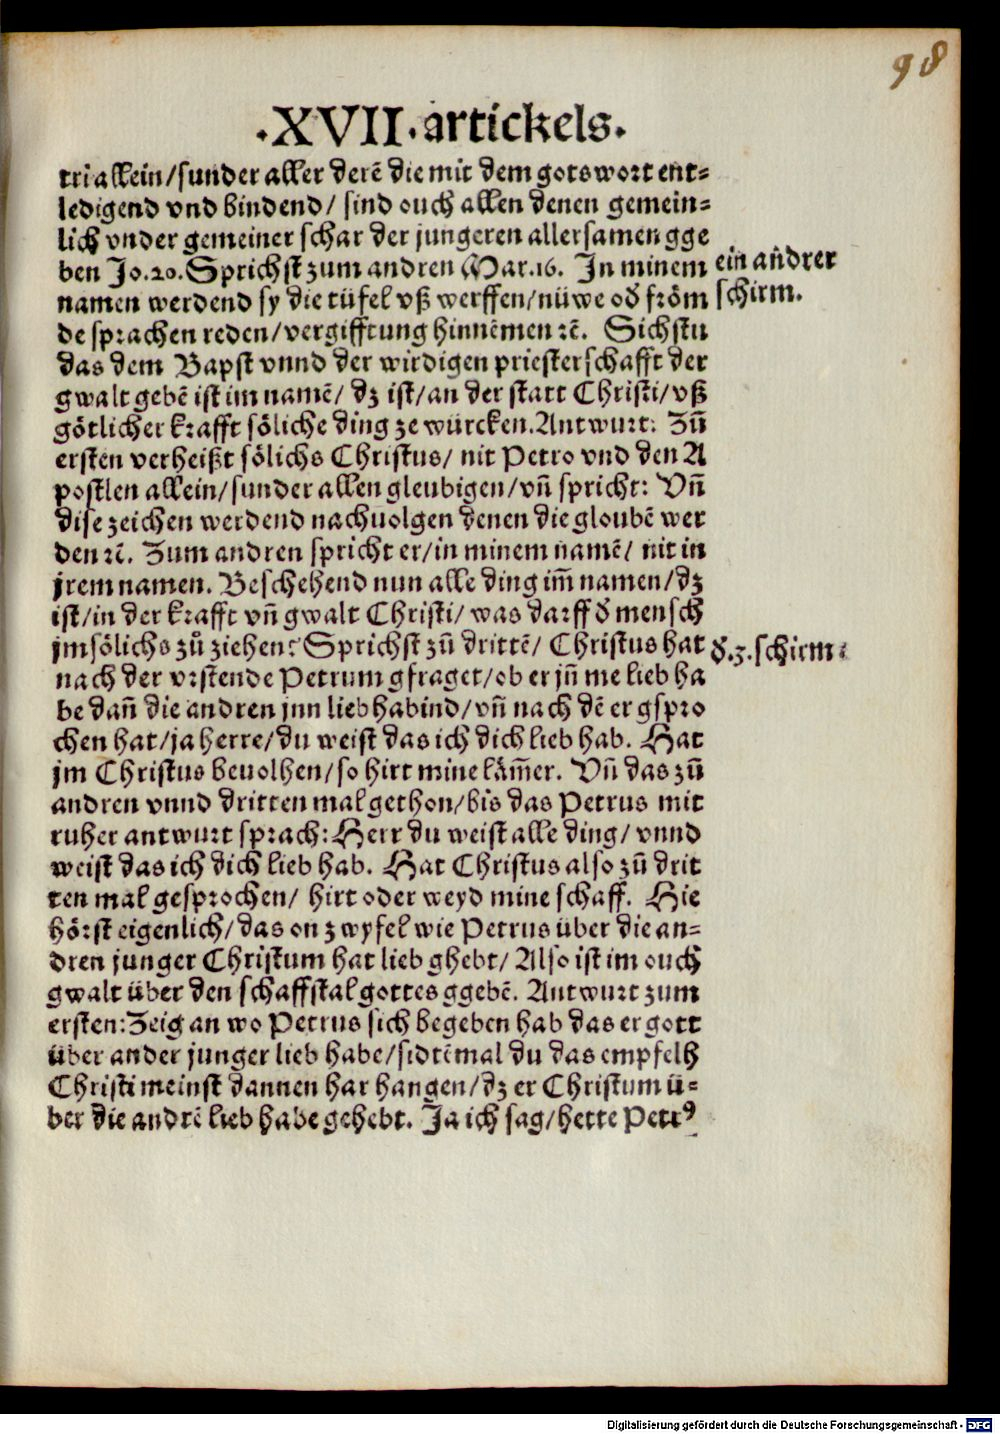 98
·XVII·artickels.
tri allein/sunder aller derē die mit dem gotswort ent=
ledigend vnd bindend/ sind ouch allen denen gemein=
lich vnder gemeiner schar der jungeren allersamen gge
ben Jo.20. Sprichst zum andren Mar.16. In minem
ein andrer
namen werdend sy die tüfel vß werffen/nüwe od̕ fröm
schirm.
de sprachen reden/vergifftung hinnēmen ꝛē. Sichstu
das dem Bapst vnnd der wirdigen priesterschafft der
gwalt gebē ist im namē/ dz ist/an der statt Christi/vß
götlicher krafft söliche ding ze würcken. Antwurt: Zū
ersten verheißt sölichs Christus/ nit Petro vnd den A
postlen allein/sunder allen gleubigen/vn̄ spricht: Vn̄
dise zeichen werdend nachuolgen denen die gloubē wer
den ꝛē. Zum andren spricht er/in minem namē/ nit in
jrem namen. Beschehend nun alle ding im̄ namen/dz
ist/in der krafft vn̄ gwalt Christi/ was darff d̕ mensch
jm sölichs zů ziehen? Sprichst zū drittē/ Christus hat
d̕.3.schirm:
nach der vrstende Petrum gfraget/ob er jn̄ me lieb ha
be dan̄ die andren jnn lieb habind/vn̄ nach dē er gspro
chen hat/ja herre/du weist das ich dich lieb hab. Hat
jm Christus beuolhen/so hirt mine läm̄er. Vn̄ das zū
andren vnnd dritten mal gethon/bis das Petrus mit
ruher antwurt sprach: Herr du weist alle ding/ vnnd
weist das ich dich lieb hab. Hat Christus also zū drit
ten mal gesprochen/ hirt oder weyd mine schaff. Hie
hörst eigenlich/das on zwyfel wie Petrus über die an=
dren junger Christum hat lieb ghebt/ Also ist im ouch
gwalt über den schaffstal gottes ggebē. Antwurt zum
ersten: Zeig an wo Petrus sich begeben hab das er gott
über ander junger lieb habe/sidtēmal du das empfelh
Christi meinst dannen har hangen/dz er Christum ü=
ber die andrē lieb habe gehebt. Ja ich sag/hette Petrꝰ
Digitalisierung gefördert durch die Deutsche Forschungsgemeinschaft - DFG